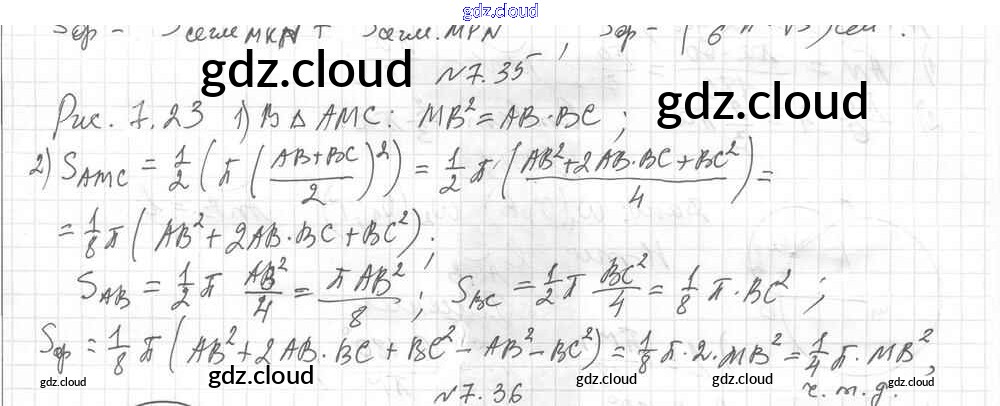 gdz.cloud
Sфр = Sсегм MKN + Sсегм. MPN ; Sфр =
gdz.cloud
№7.35
gdz.cloud
Рис. 7.23 1) В △ AMC: MB² = AB·BC ;
2) S_AMC = 1/2 (π ((AB+BC)/2)²) = 1/2 π ((AB²+2AB·BC+BC²)/4) =
= 1/8 π (AB² + 2AB·BC + BC²) ;
S_AB = 1/2 π AB²/4 = πAB²/8 ; S_BC = 1/2 π BC²/4 = 1/8 π·BC² ;
Sфр = 1/8 π (AB² + 2AB·BC + BC² - AB² - BC²) = 1/8 π·2·MB² = 1/4 π·MB²,
ч.т.д.
gdz.cloud gdz.cloud gdz.cloud gdz.cloud gdz.cloud
№7.36